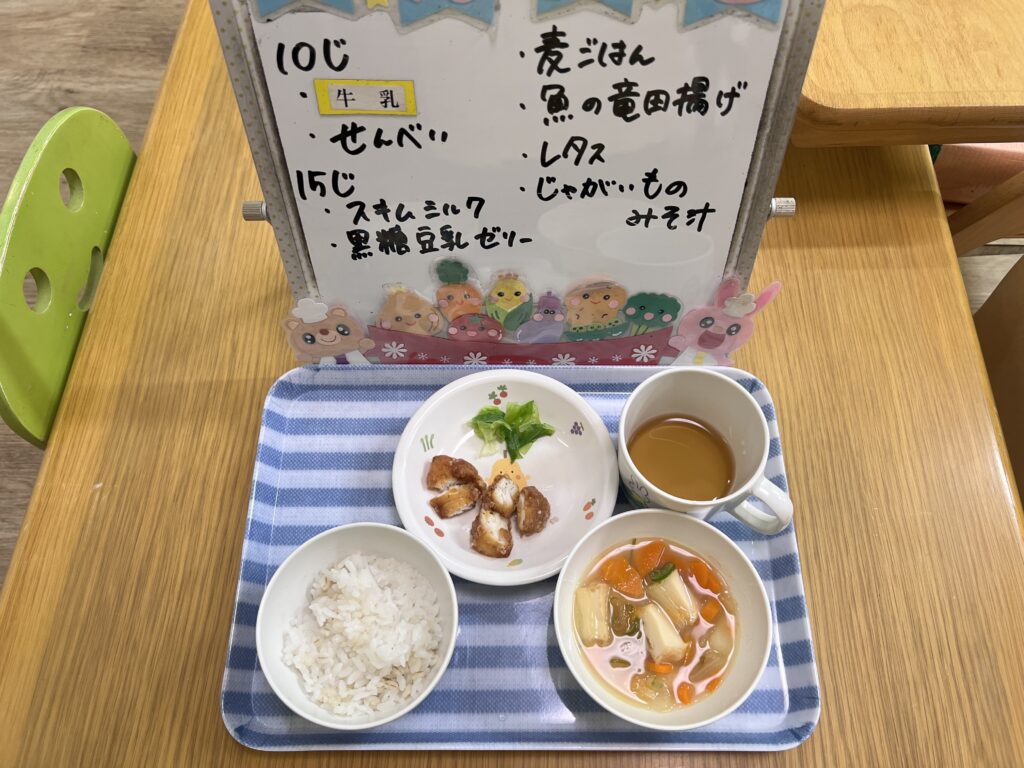 10じ
・牛乳
・せんべい
15じ
・スキムミルク
・黒糖豆乳ゼリー
・麦ごはん
・魚の竜田揚げ
・レタス
・じゃがいもの
みそ汁